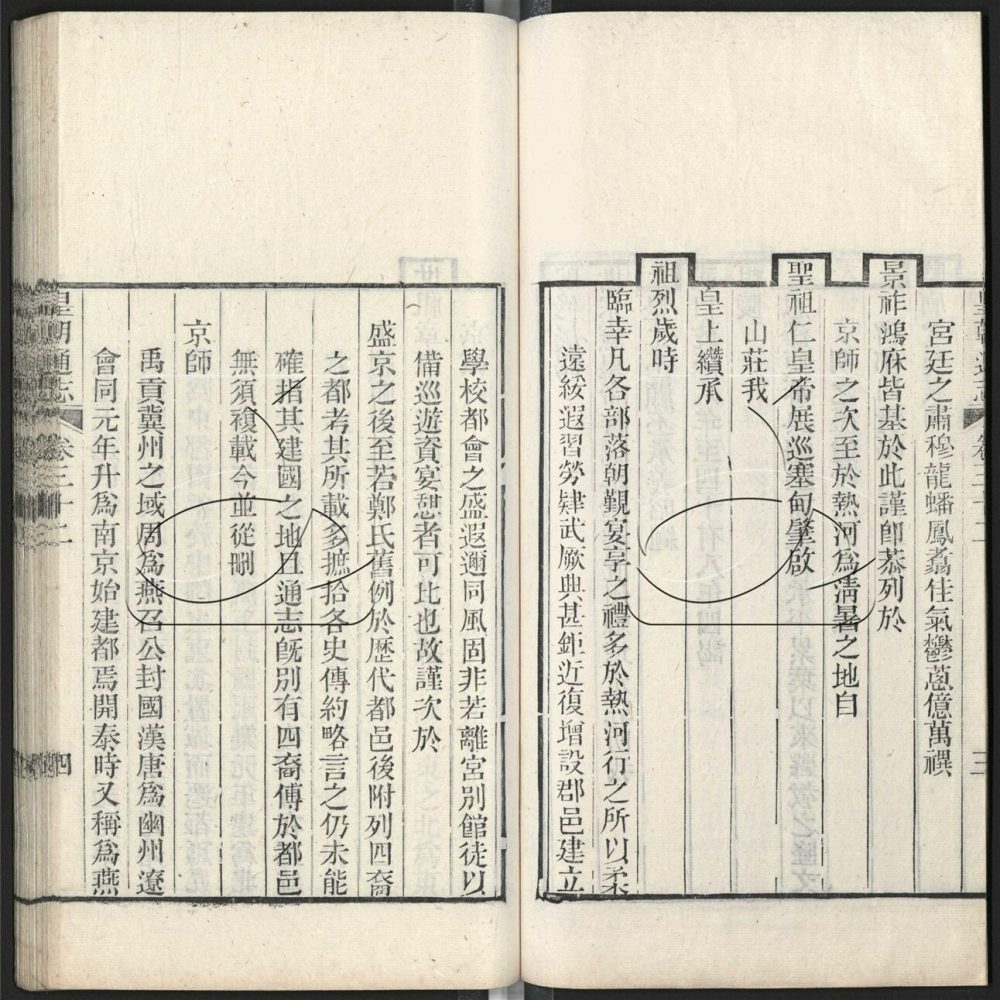 宮廷之肅穆龍蟠鳳翥佳氣鬱蔥億萬禩
景祚鴻庥皆基於此謹卽恭列於
京師之次至於熱河爲淸暑之地自
聖祖仁皇帝展巡塞甸肇啟
山莊我
皇上纘承
祖烈歲時
臨幸凡各部落朝覲宴享之禮多於熱河行之所以柔
遠綏遐習勞肄武厥典甚鉅近復增設郡邑建立
學校都會之盛遐邇同風固非若離宮別館徒以
備巡遊資宴憩者可比也故謹次於
盛京之後至若鄭氏舊例於歷代都邑後附列四裔
之都考其所載多摭拾各史傳約略言之仍未能
確指其建國之地且通志旣別有四裔傳於都邑
無須複載今並從刪
京師
禹貢冀州之域周爲燕召公封國漢唐爲幽州遼
會同元年升爲南京始建都焉開泰時又稱爲燕
皇朝通志 卷三十二 四